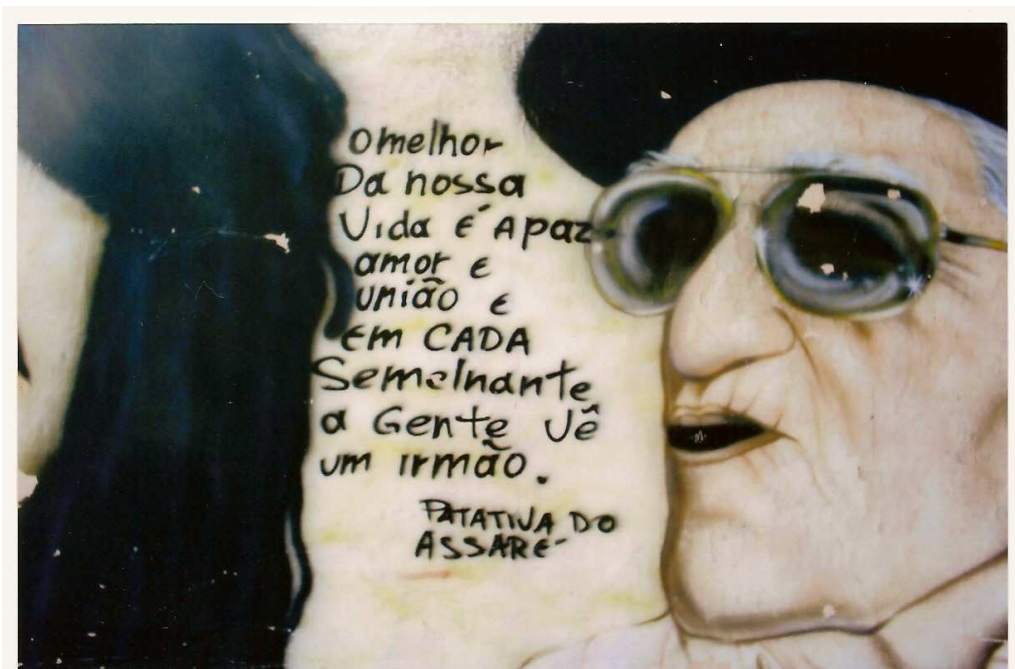 O melhor
Da nossa
Vida é A paz
amor e
união e
Em CADA
Semelhante
a Gente vê
um irmão.
PATATIVA DO
ASSARÉ